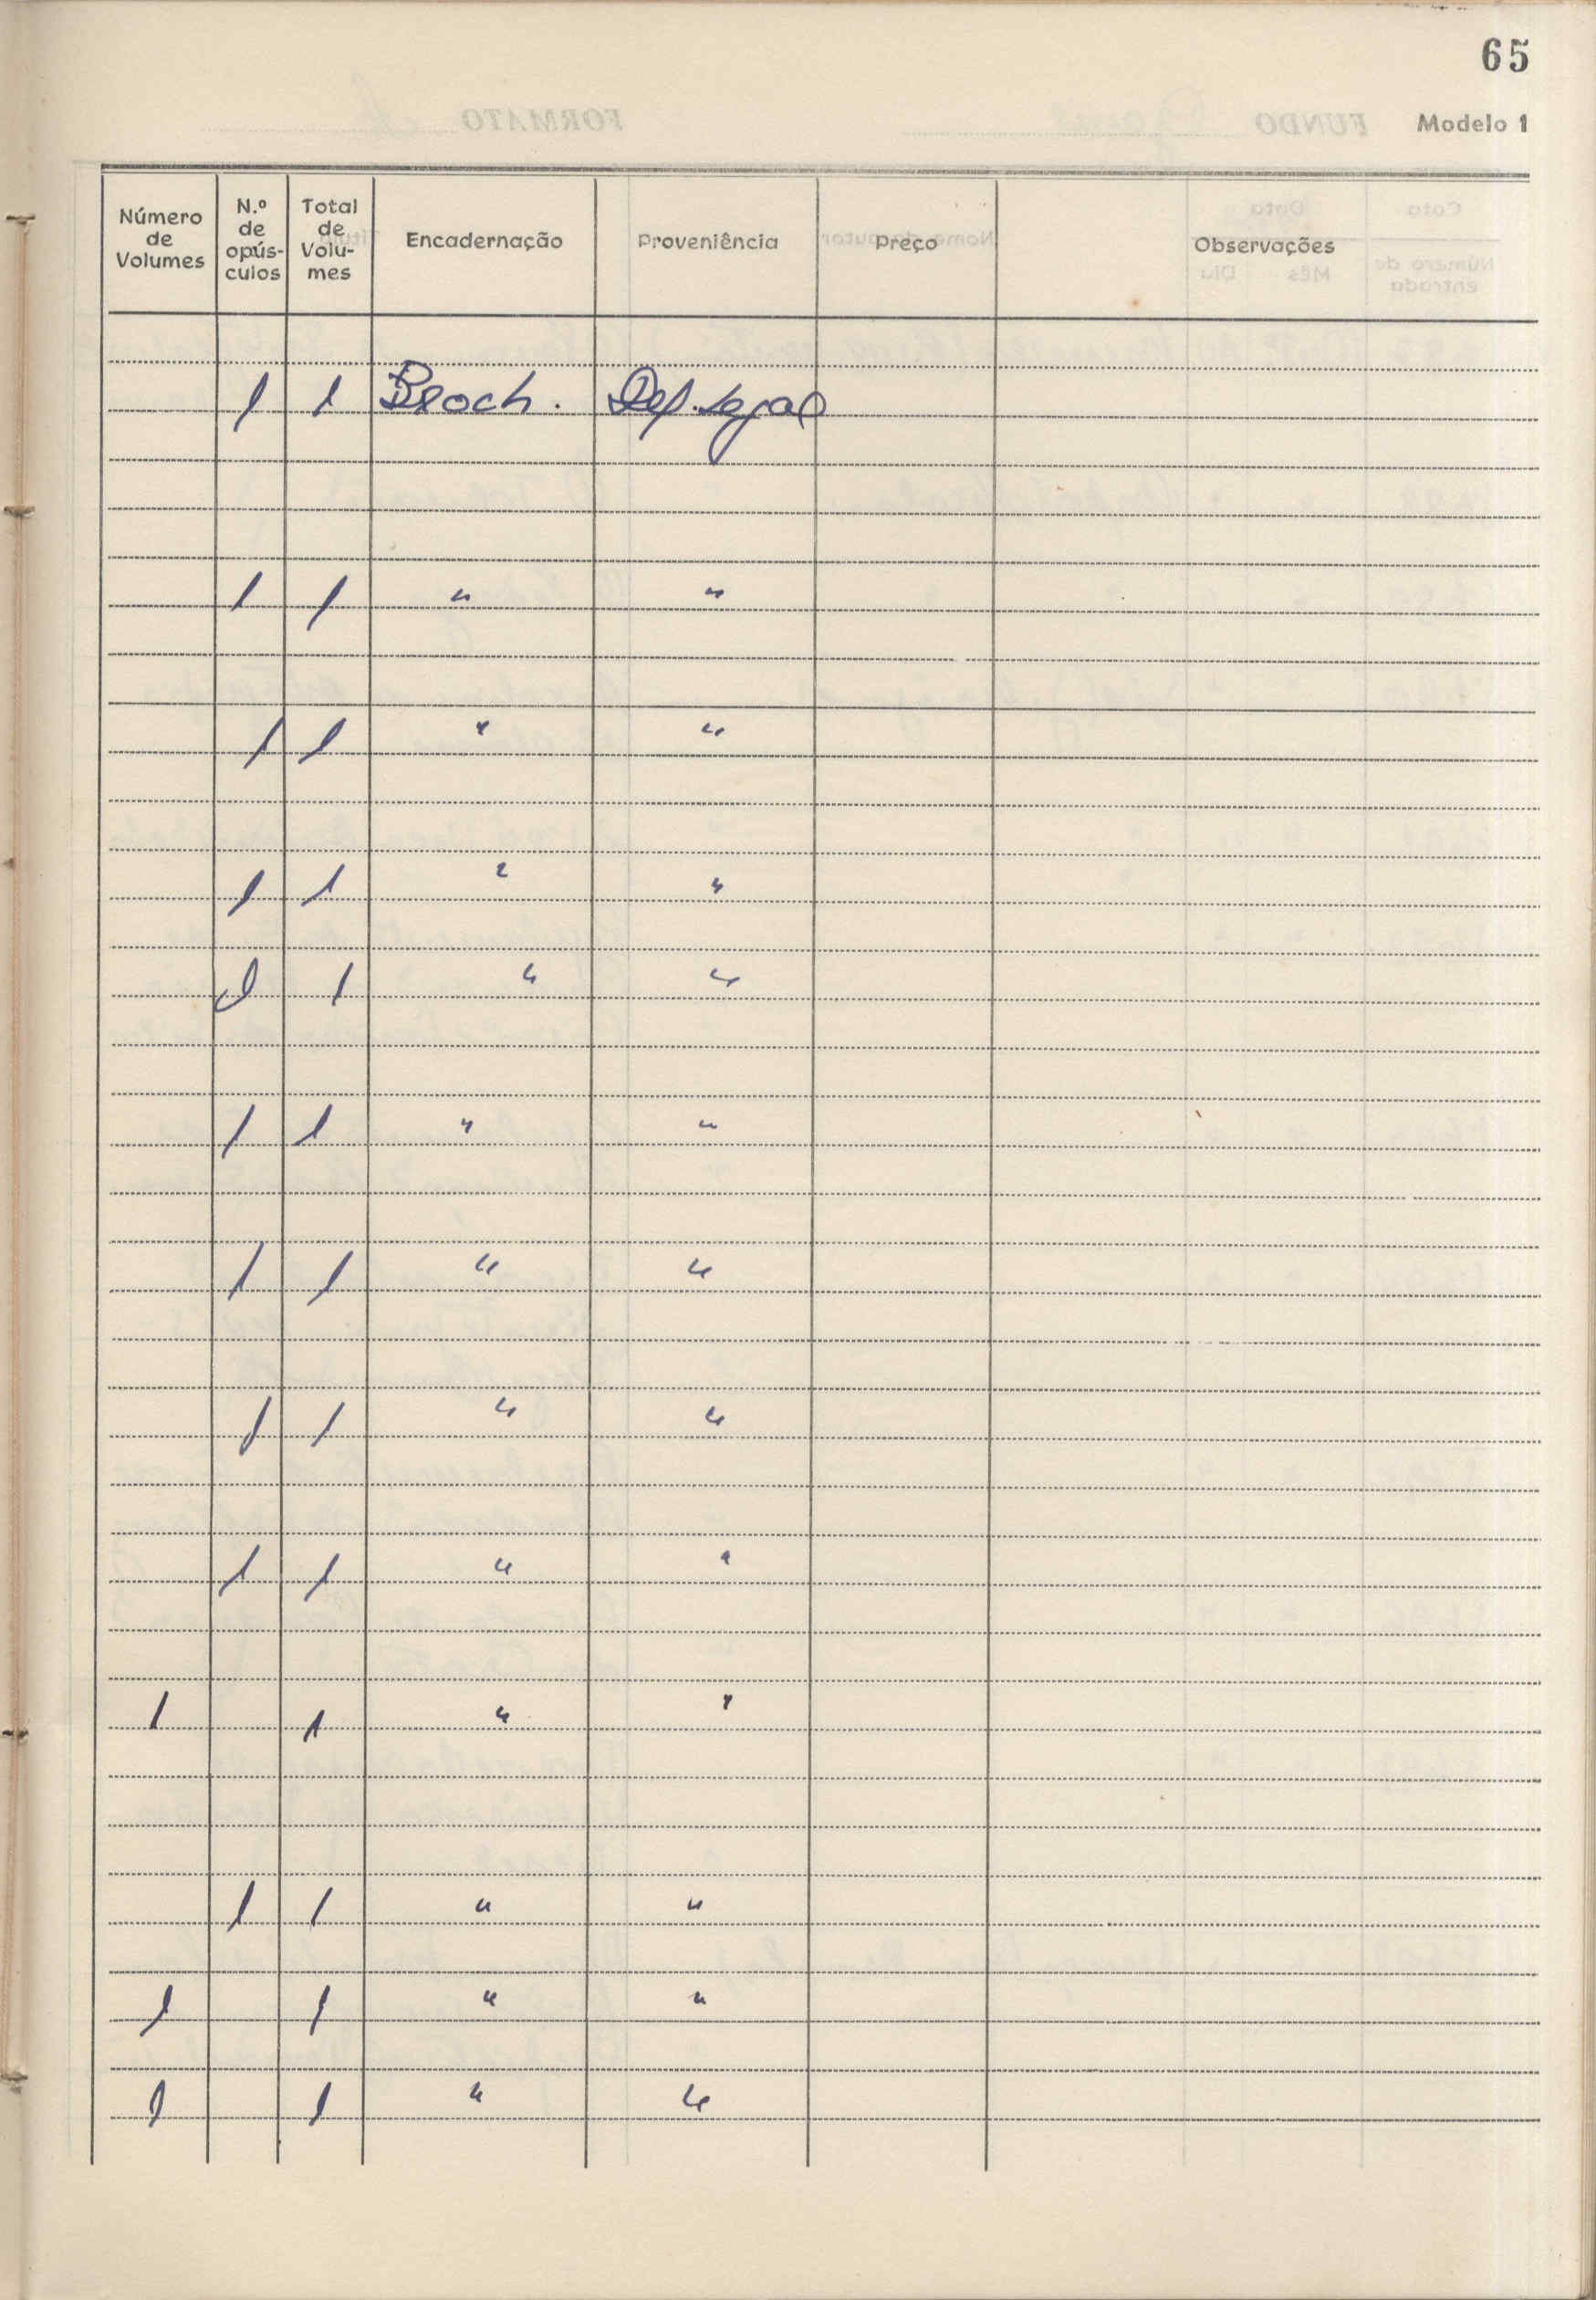 65
Modelo 1
Número de Volumes | N.º de opús-culos | Total de Volu-mes | Encadernação | Proveniência | Preço | Observações
1 1 Broch. Dep. Legal
1 1 " "
1 1 " "
1 1 " "
1 1 " "
1 1 " "
1 1 " "
1 1 " "
1 1 " "
1 1 " "
1 1 " "
1 1 " "
1 1 " "